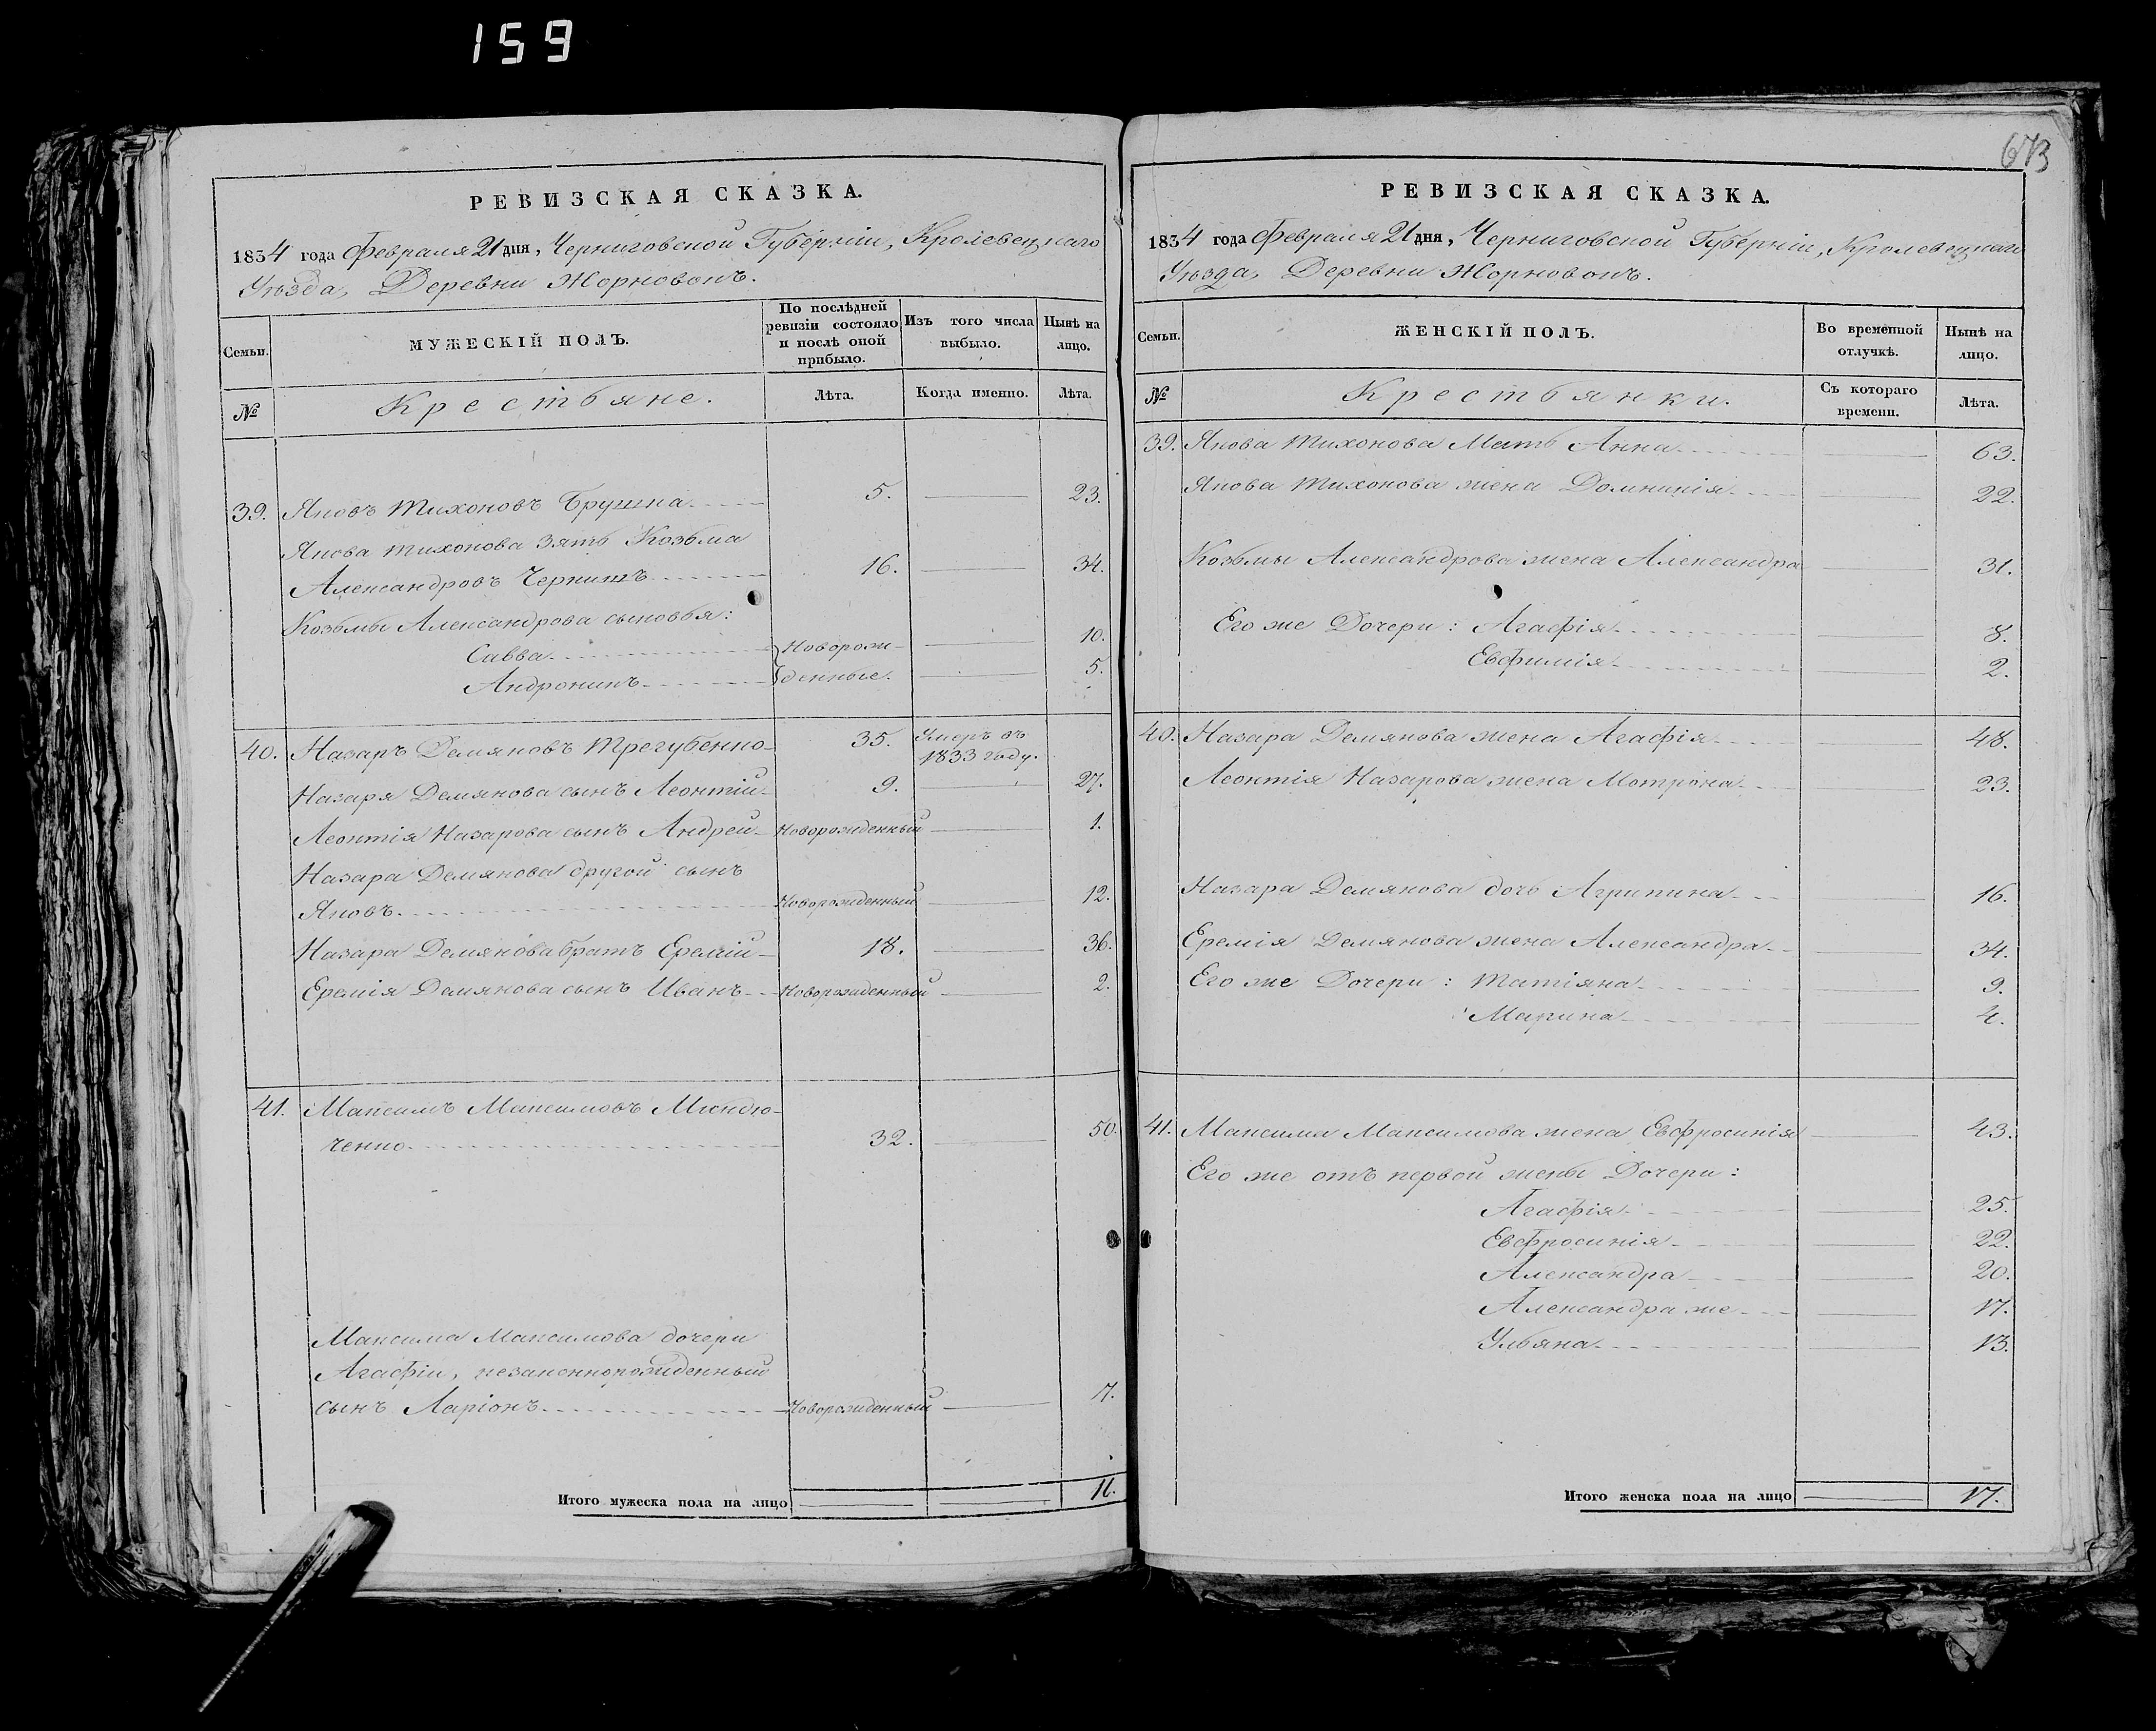 159
673
РЕВИЗСКАЯ СКАЗКА.
1834 года Февраля 21 дня, Черниговской Губернiи, Кролевецкаго
Уѣзда, Деревни Жорновокъ.
Семьи.
МУЖЕСКIЙ ПОЛЪ.
По послѣдней ревизiи состояло и послѣ оной прибыло.
Изъ того числа выбыло.
Нынѣ на лицо.
№
Крестьяне.
Лѣта.
Когда именно.
Лѣта.
39. Яковъ Тихоновъ Брушка 5. 23.
Якова Тихонова Зять Козьма
Александровъ Чернишъ 16. 34.
Козьмы Александрова сыновья:
Савва Новорож- 10.
Андроникъ денные. 5.
40. Назаръ Демяновъ Трегубенко 35. Умеръ въ 1833 году.
Назаря Демянова сынъ Леонтiй 9. 27.
Леонтiя Назарова сынъ Андрей Новорожденный 1.
Назара Демянова другой сынъ
Яковъ Новорожденный 12.
Назара Демянова братъ Еремiй 18. 36.
Еремiя Демянова сынъ Иванъ Новорожденный 2.
41. Максимъ Максимовъ
ченко 32. 50.
Максима Максимова дочери
Агафiи, незаконнорожденный
сынъ Ларiонъ Новорожденный 7.
Итого мужеска пола на лицо 11.
РЕВИЗСКАЯ СКАЗКА.
1834 года Февраля 21 дня, Черниговской Губернiи, Кролевецкаго
Уѣзда, Деревни Жорновокъ.
Семьи.
ЖЕНСКIЙ ПОЛЪ.
Во временной отлучкѣ.
Нынѣ на лицо.
№
Крестьянки.
Съ котораго времени.
Лѣта.
39. Якова Тихонова Мать Анна 63.
Якова Тихонова жена Домникiя 22.
Козьмы Александрова жена Александра 31.
Его же Дочери: Агафiя 8.
Евфимiя 2.
40. Назара Демянова жена Агафiя 48.
Леонтiя Назарова жена Мотрона 23.
Назара Демянова дочь Агрипина 16.
Еремiя Демянова жена Александра 34.
Его же Дочери: Татiяна 9.
Марина 4.
41. Максима Максимова жена Евфросинiя 43.
Его же отъ первой жены Дочери:
Агафiя 25.
Евфросинiя 22.
Александра 20.
Александра же 17.
Ульяна 13.
Итого женска пола на лицо 17.